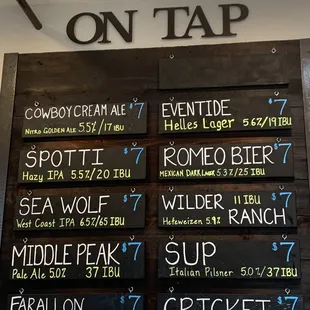 ON TAP
COWBOY CREAM ALE $7
NITRO GOLDEN ALE 5.5%/17 IBU
SPOTTI $7
HAZY IPA 5.5%/20 IBU
SEA WOLF $7
WEST COAST IPA 6.5%/65 IBU
MIDDLE PEAK $7
Pale Ale 5.0% 37 IBU
FARALLON $7
$7
EVENTIDE $7
Helles Lager 5.6%/19 IBU
ROMEO BIER $7
MEXICAN DARK LAGER 5.3%/25 IBU
WILDER RANCH $7
Hefeweizen 5.9% 11 IBU
SUP $7
Italian Pilsner 5.0%/37 IBU
CRICKET $7